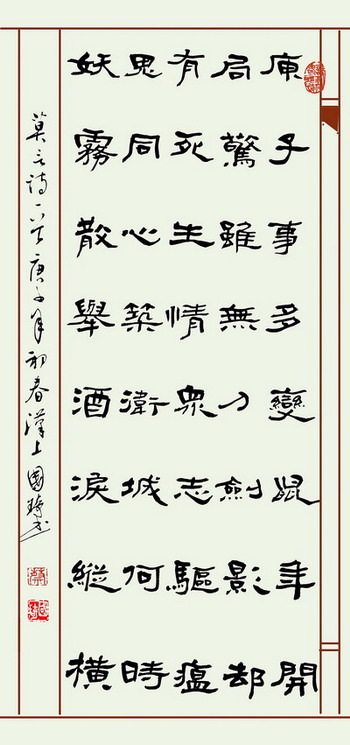 庚子事多變鼠年開
局驚雖無刀劍影却
有死生情眾志驅瘟
鬼同心築衛城何時
妖霧散舉酒淚縱橫
莫言诗一首庚子年初春漢上國书